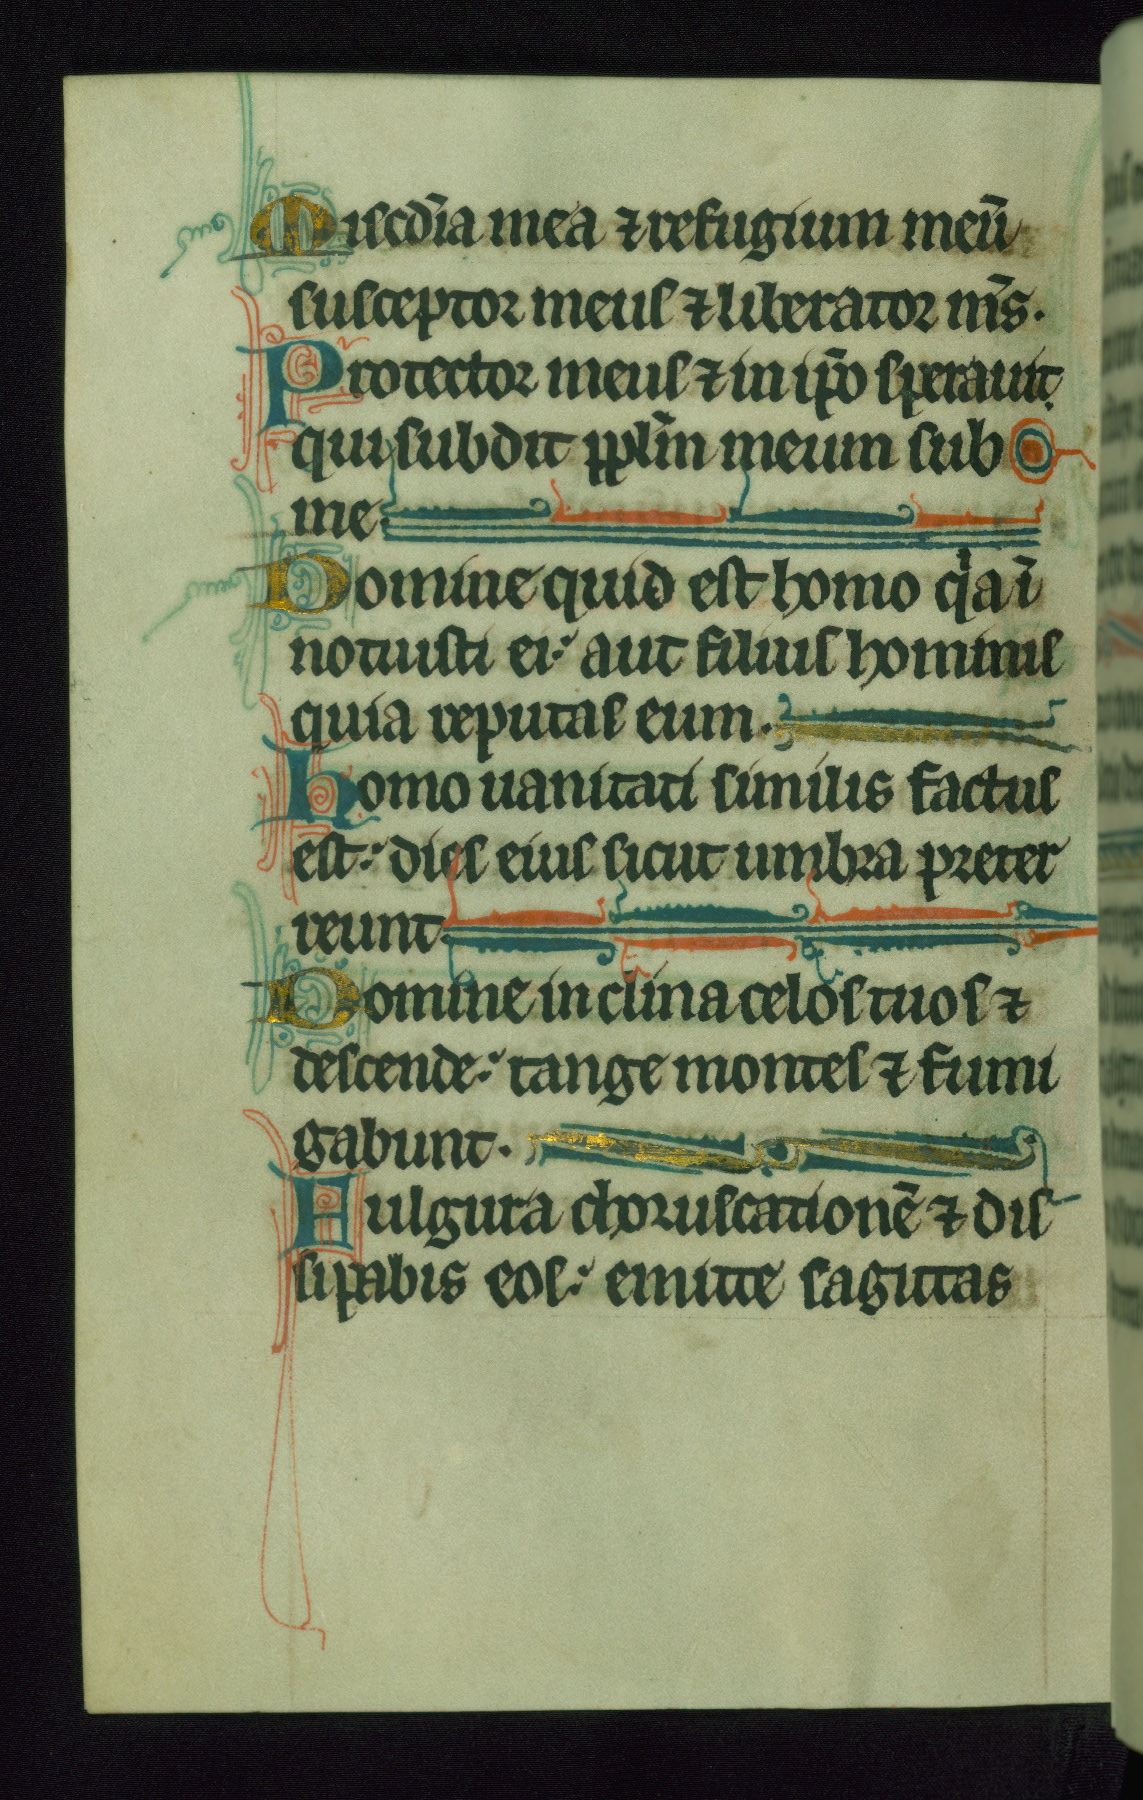 Miscdīa mea ⁊ refugium meū
susceptor meus ⁊ liberator m̄s.
Protector meus ⁊ in ip̄o speraui:
qui subdit ppl̄m meum sub
me.
Domine quid est homo qͥa ī
notuisti ei: aut filius hominis
quia reputas eum.
homo uanitati similis factus
est: dies eius sicut umbra preter
reunt.
Domine inclina celos tuos ⁊
descende: tange montes ⁊ fumi
gabunt.
Fulgura choruscationē ⁊ dis
sipabis eos: emitte sagittas